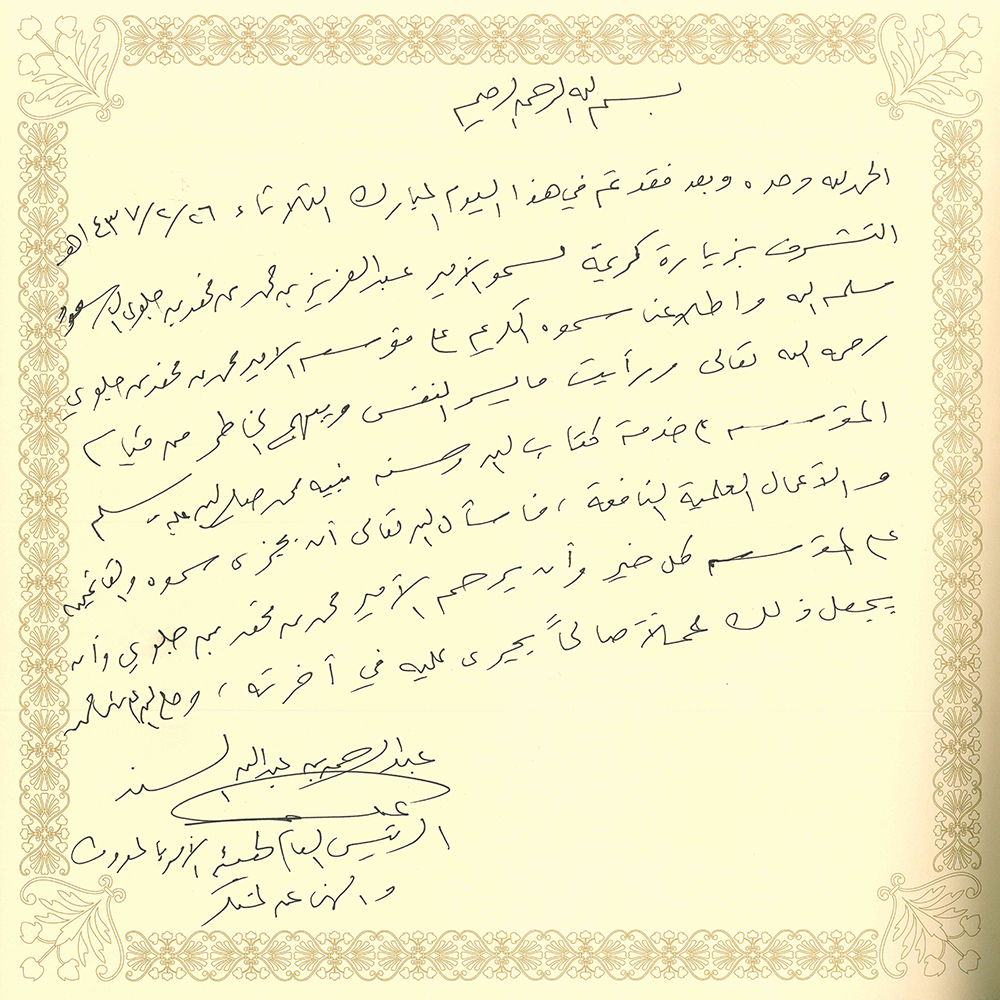 بسم الله الرحمن الرحيم
الحمد لله وحده وبعد فقد تم في هذا اليوم المبارك الثلاثاء ١٤٣٧/٢/٢٦هـ
التشرف بزيارة كريمة لسمو الأمير عبدالعزيز بن محمد بن فهد بن جلوي آل سعود
سلمه الله واطلاعنا سموه الكريم على مؤسسة الأمير محمد بن فهد بن جلوي
رحمه الله تعالى ورأيت ما يسر النفس ويبهج الخاطر من قيام
المؤسسة على خدمة كتاب الله وسنة نبيه محمد صلى الله عليه وسلم
والأعمال العلمية النافعة ، فأسأل الله تعالى أن يجزي سموه والقائمين
على المؤسسة كل خير وأن يرحم الأمير محمد بن فهد بن جلوي وأن
يجعل ذلك عملاً صالحاً يجرى عليه في آخرته ، وصلى الله على
عبدالرحمن بن عبدالله السند
الرئيس العام لهيئة الأمر بالمعروف
والنهي عن المنكر